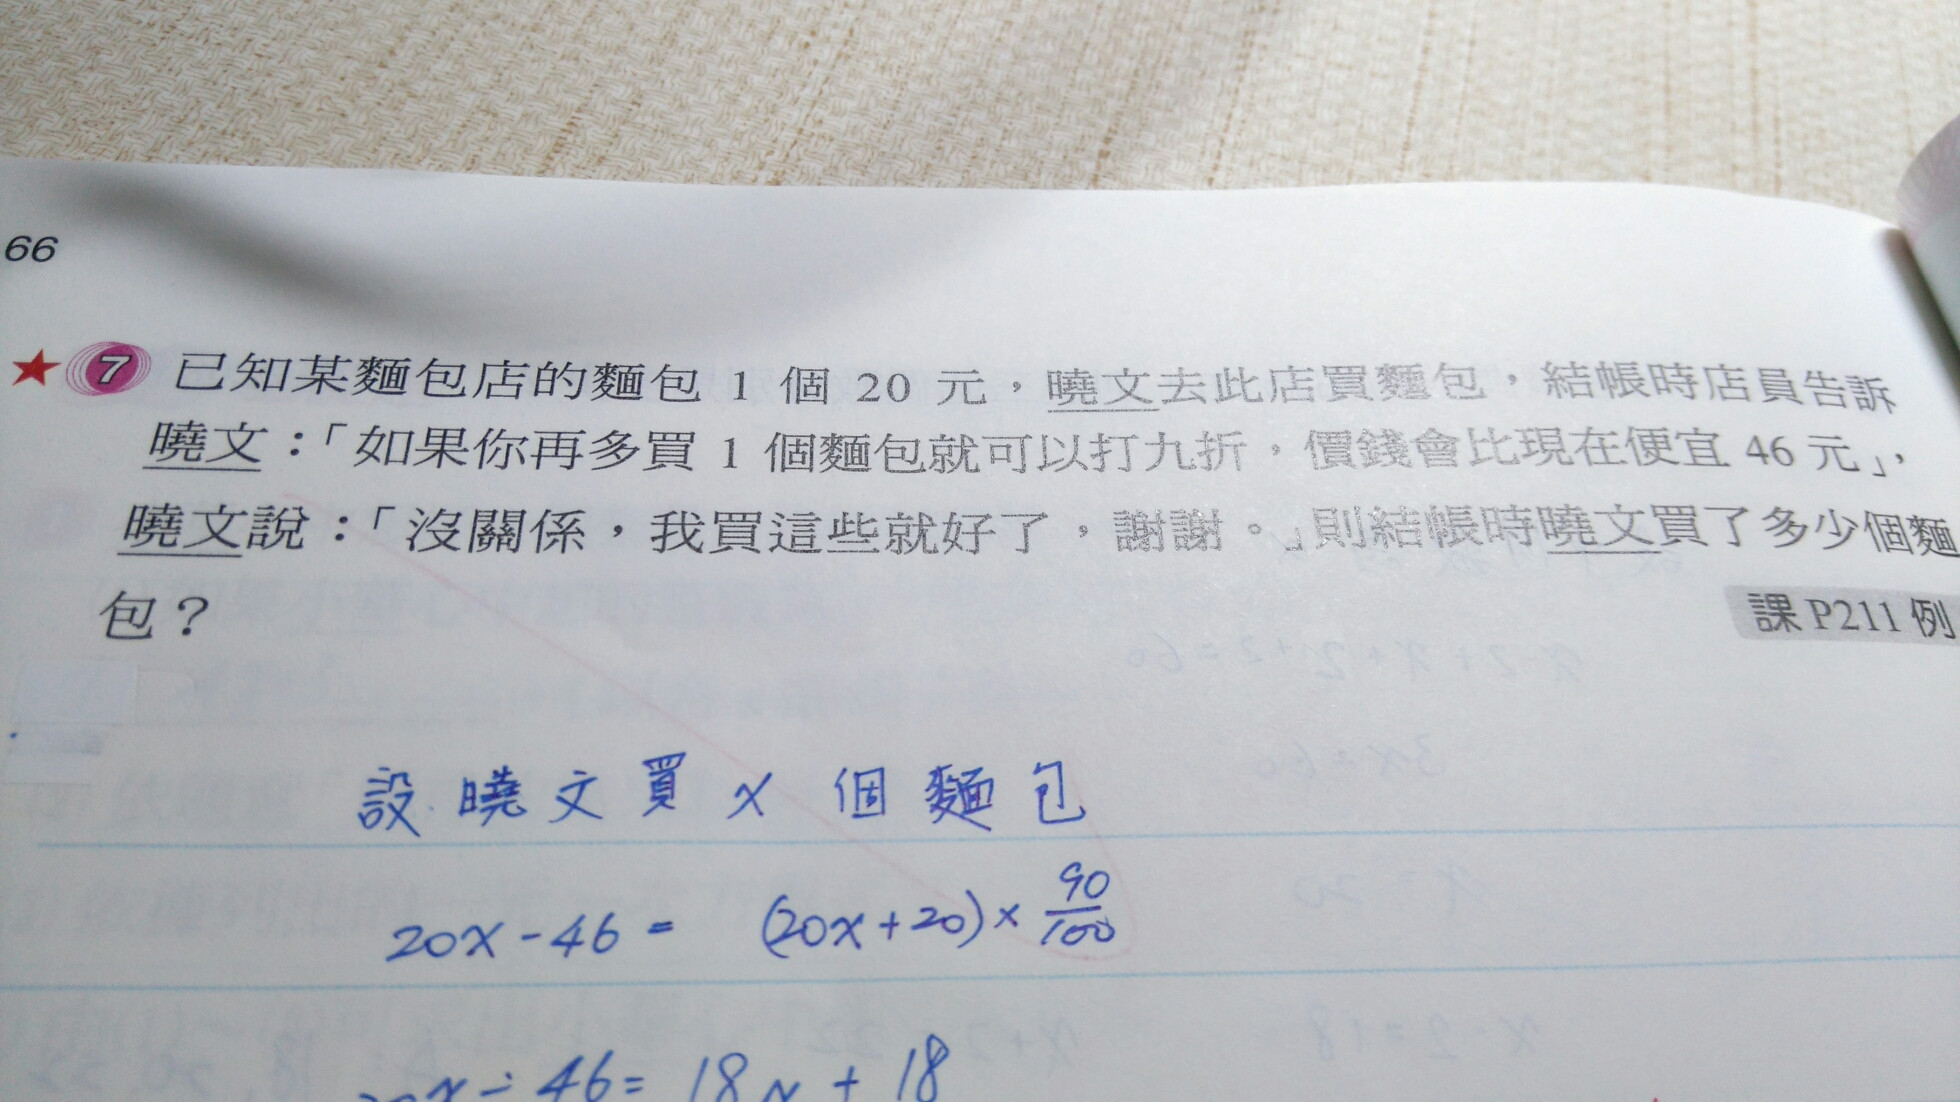 66
★ 7 已知某麵包店的麵包 1 個 20 元，曉文去此店買麵包，結帳時店員告訴
曉文：「如果你再多買 1 個麵包就可以打九折，價錢會比現在便宜 46 元」，
曉文說：「沒關係，我買這些就好了，謝謝。」則結帳時曉文買了多少個麵
包？
課 P211 例
設曉文買 x 個麵包
20x - 46 = (20x + 20) × 90/100
x - 46 = 18x + 18